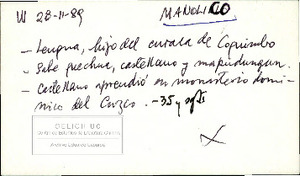 VI 28-11-89 MANOLICO
- Lengua, hijo del curaca de Copiumbo
- Sabe quechua, castellano y mapundungun.
- Castellano aprendió en monasterio domi-
nico del Cuzco. - 35 y
CELICH UC